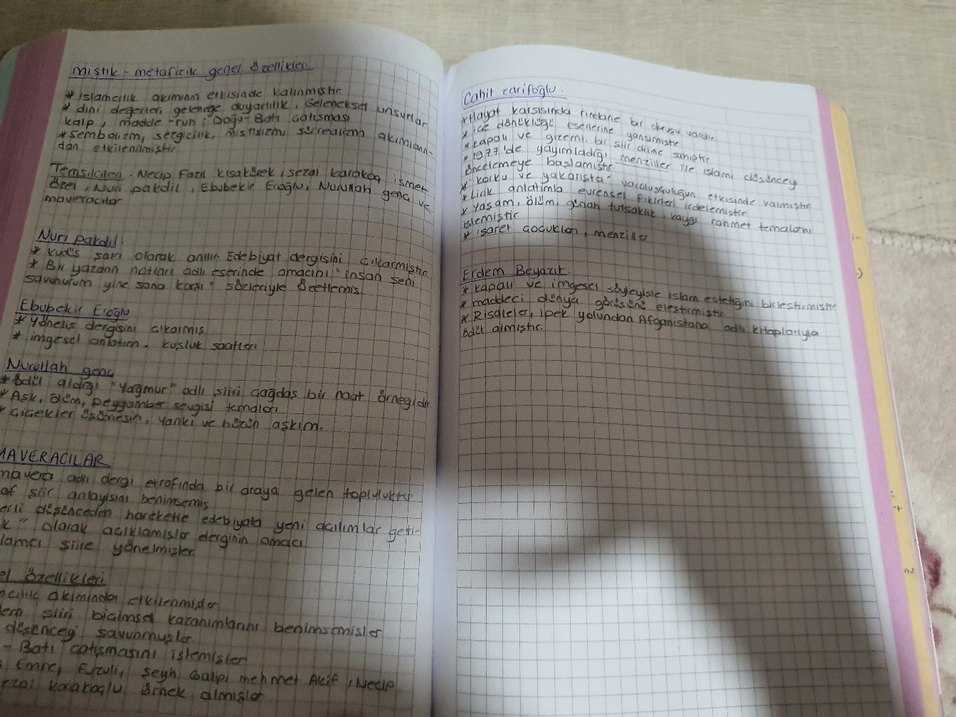 mistik - metafizik genel özellikleri
* İslamcılık akımının etkisinde kalınmıştır
* dini değerler, geleneğe duyarlılık, Geleneksel unsurlar
kalp, madde - ruh, Doğu-Batı çatışması
* sembolizm, sezgicilik, mistisizm, sürrealizm akımların-
dan etkilenilmiştir
Temsilcileri: Necip Fazıl Kısakürek, sezai karakoç, ismet
özel, Nuri pakdil, Ebubekir Eroğlu, Nurullah genç ve
maveracılar
Nuri pakdil:
* kudüs şairi olarak anılır. Edebiyat dergisini çıkarmıştır
* Bir yazarın notları adlı eserinde amacını "insan seni
savunurum yine sana karşı" sözleriyle özetlemiş.
Ebubekir Eroğlu
* Yöneliş dergisini çıkarmış
* imgesel anlatım. kuşluk saatleri
Nurullah genç
* ödül aldığı "Yağmur" adlı şiiri çağdaş bir naat örneğidir
* Aşk, ölüm, peygamber sevgisi temaları
* Çiçekler üşümesin, yankı ve hüzün aşkım.
MAVERACILAR
mavera adlı dergi etrafında bir araya gelen topluluktur
saf şiir anlayışını benimsemiş
düşünceden hareketle edebiyata yeni açılımlar geti-
k" olarak açıklamışlar derginin amacı
şiire yönelmişler
el özellikleri
akımından etkilenmişler
şiiri biçimsel kazanımlarını benimsemişler
düşünceyi savunmuşlar
- Batı çatışmasını işlemişler
Emre, Fuzuli, şeyh Galip, mehmet Akif, Necip
ezai karakoçlu örnek almışlar
Cahit zarifoğlu:
* Hayat karşısında rindane bir duruşu vardır.
* içe dönüklüğü eserlerine yansımıştır
* kapalı ve gizemli bir şiir diline sahiptir
* 1977'de yayımladığı menziller ile islami düşünceyi
öncelemeye başlamıştır
* "korku ve yakarış"ta varoluşçuluğun etkisinde kalmıştır
* Lirik anlatımla evrensel fikirleri irdelemiştir
* Yaşam, ölüm, günah tutsaklık kaygı rahmet temalarını
işlemiştir
* işaret çocukları, menziller
Erdem Beyazıt:
* kapalı ve imgesel söyleyişle islam estetiğini birleştirmiştir
* maddeci dünya görüşünü eleştirmiştir
* Risaleler, ipek yolundan Afganistana adlı kitaplarıyla
ödül almıştır.